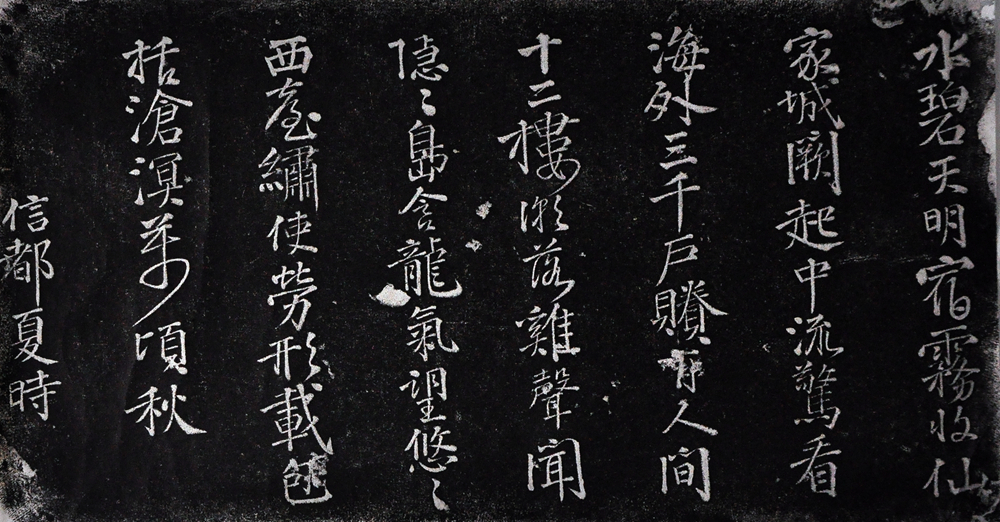 水碧天明宿霧收仙
家城闕起中流驚看
海外三千戶賸有人間
十二樓潮落雞聲聞
隱〻島含龍氣望悠〻
西臺繡使勞形載包
括滄溟萬頃秋
信都夏時